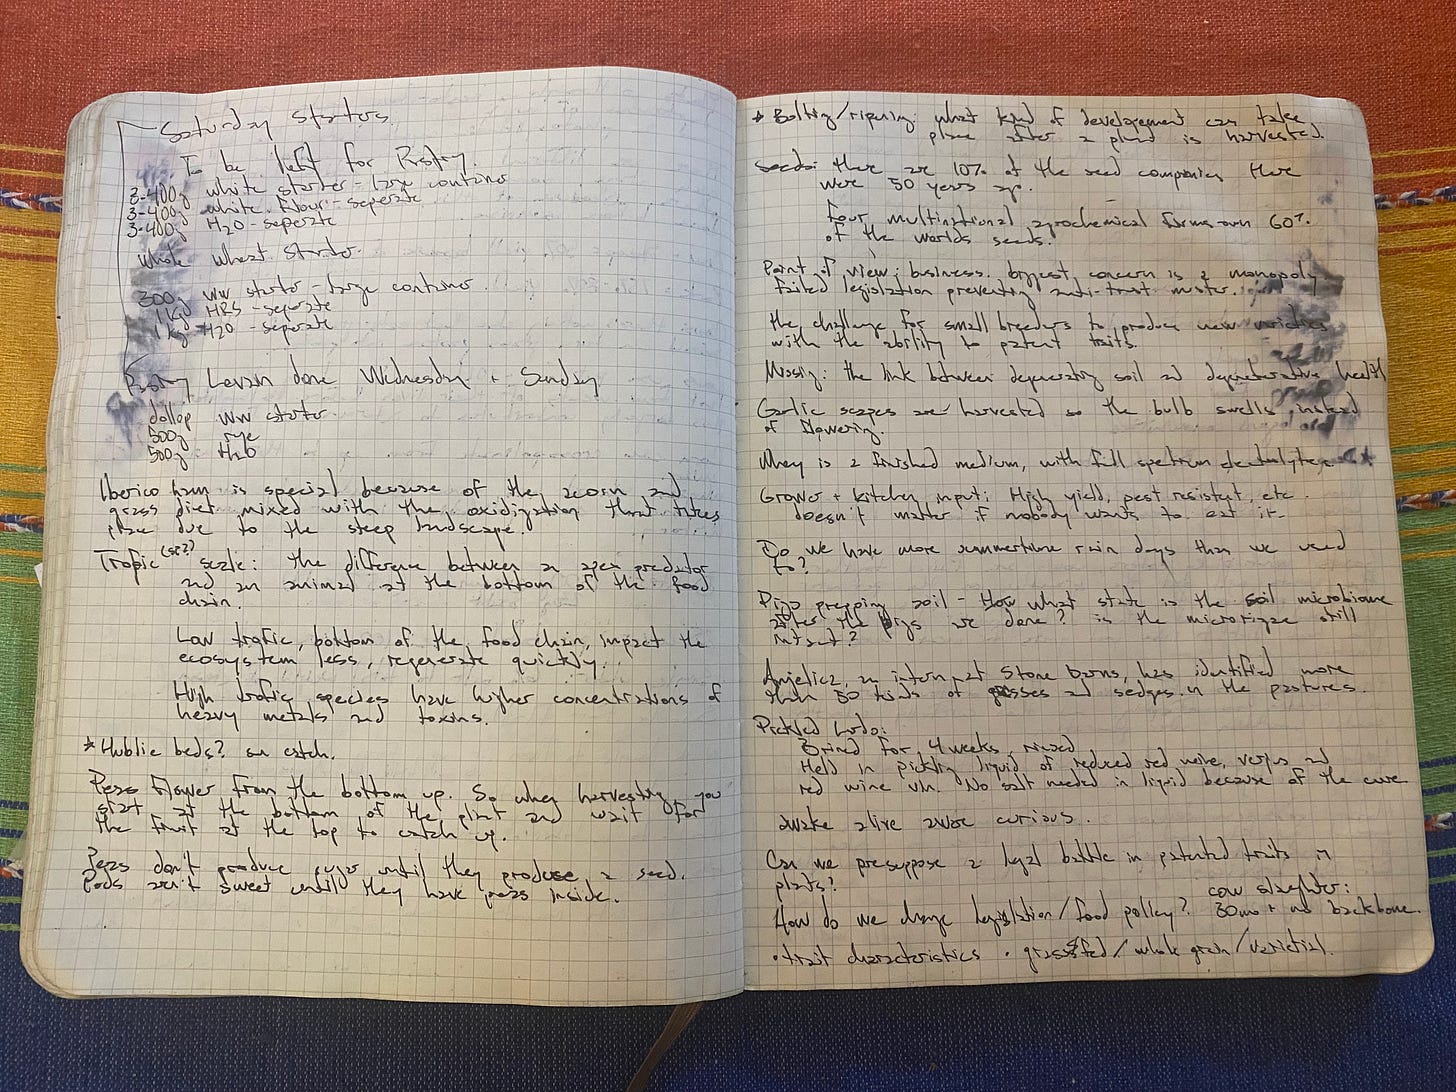 Saturday starters
To be left for Pastry.
3-400g white starter - large container
3-400g white flour - seperate
3-400g H2O - seperate
Whole wheat starter.
300g ww starter - large container
1 kg HRS - seperate
1 kg H2O - seperate
Pastry Levain done Wednesday + Sunday
dollop ww starter
500g rye
500g H2O
Iberico ham is special because of the acorn and
grass diet mixed with the oxidization that takes
place due to the steep landscape.
Trofic (sp?) scale: the difference between an apex predator
and an animal at the bottom of the food
chain.
Low trofic, bottom of the food chain, impact the
ecosystem less, regenerate quickly.
High trofic species have higher concentrations of
heavy metals and toxins.
* Hublic beds? sun catch.
Peas flower from the bottom up. So when harvesting, you
start at the bottom of the plant and wait for
the fruit at the top to catch up.
Peas don't produce sugar until they produce a seed.
Pods aren't sweet until they have peas inside.
* Bolting/ripening: what kind of developement can take
place after a plant is harvested.
seeds: there are 10% of the seed companies there
were 50 years ago.
Four multinational agrochemical firms own 60%
of the worlds seeds.
Point of view; business. biggest concern is a monopoly
failed legislation preventing anti-trust
the challenge for small breeders to produce new varieties
with the ability to patent traits.
Missing: the link between degenerating soil and degenerative health
Garlic scapes are harvested so the bulb swells instead
of flowering.
Whey is a finished medium, with full spectrum electrolytes
Grower + kitchen input: High yield, pest resistant, etc.
doesn't matter if nobody wants to eat it.
Do we have more summertime rain days than we used
to?
Pigs prepping soil - How what state is the soil microbiome
after the pigs are done? is the still
intact?
Anjelica, an intern at Stone Barns, has identified more
than 50 kinds of grasses and sedges in the pastures.
Pickled Lardo:
Brined for 4 weeks, rinsed
Held in pickling liquid of reduced red wine, verjus and
red wine vin. No salt needed in liquid because of the cure
awake alive aware curious.
Can we presuppose a legal battle in patented traits in
plants?
cow slaughter:
How do we change legislation/food policy? 30mo + no backbone.
• trait characteristics • grassfed/whole grain/varietial